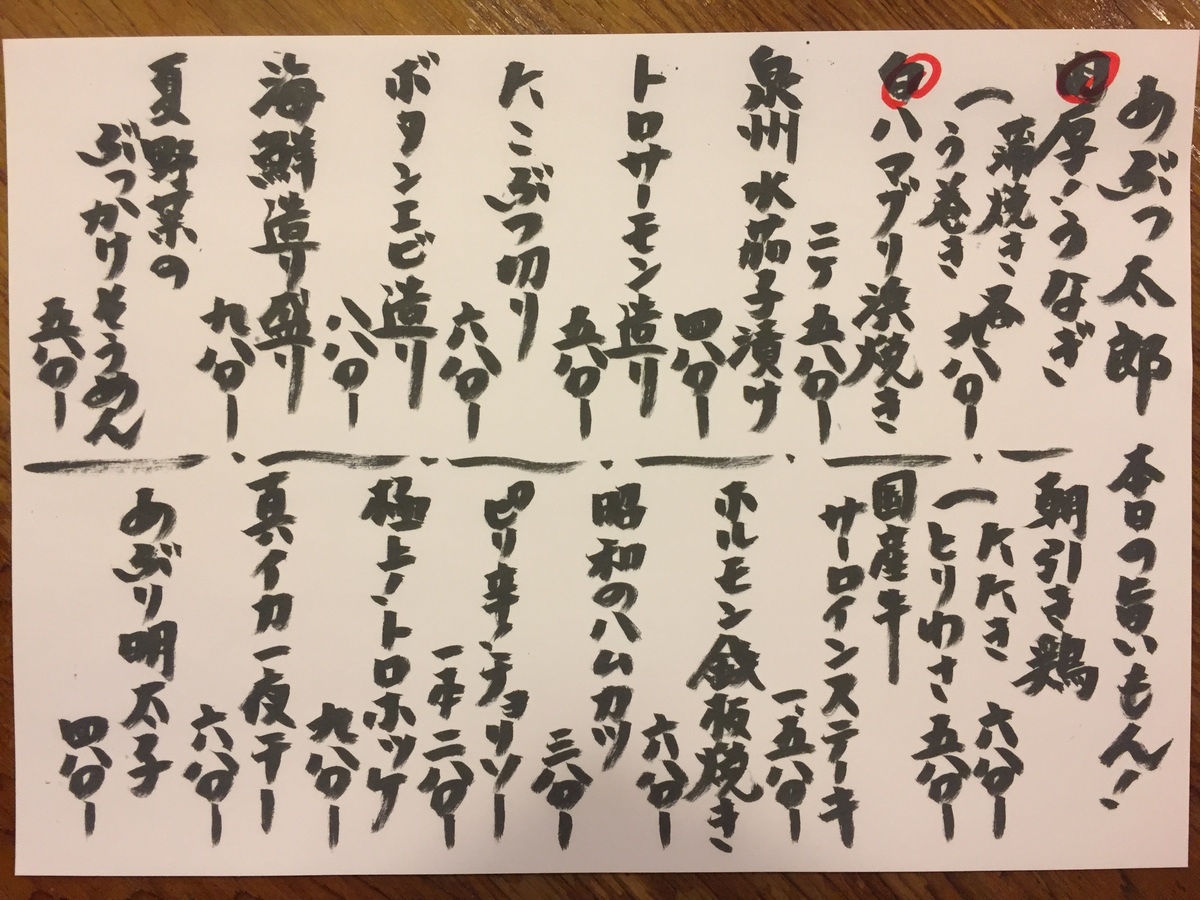 あぶつ太郎 本日の旨いもん!
肉厚!うなぎ
蒲焼き、各
う巻き 九八〇ー
旬 ハマグリ浜焼き
二ケ 五八〇ー
泉州水茄子漬け
四八〇ー
トロサーモン造り
五八〇ー
たこぶつ切り
六八〇ー
ボタンエビ造り
八八〇ー
海鮮造り盛り
九八〇ー
夏野菜の
ぶっかけそうめん
五八〇ー
朝引き鶏
たたき 六八〇ー
とりわさ 五八〇ー
国産牛
サーロインステーキ
一、五八〇ー
ホルモン鉄板焼き
六八〇ー
昭和のハムカツ
三八〇ー
ピリ辛チョリソー
一本二八〇ー
極上!トロホッケ
九八〇ー
真イカ一夜干ー
六八〇ー
あぶり明太子
四八〇ー